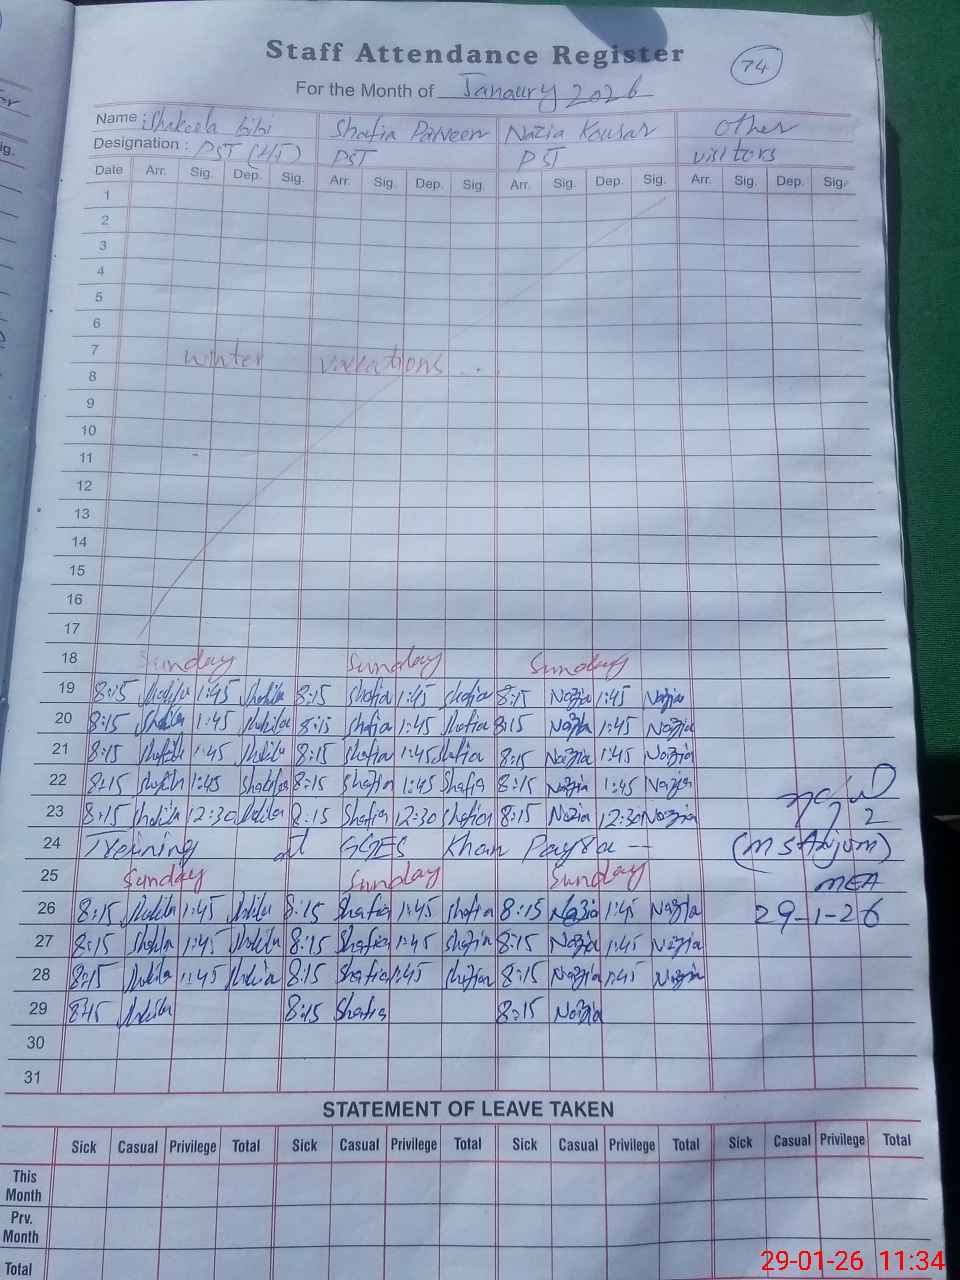 Staff Attendance Register
74
For the Month of Janaury 2026
Name : Shakeela bibi Shafia Parveen Nazia Kousar Other
Designation : PST (H.T) PST PST visitors
Date Arr. Sig. Dep. Sig. Arr. Sig. Dep. Sig. Arr. Sig. Dep. Sig. Arr. Sig. Dep. Sig.
1
2
3
4
5
6
7 winter vacations ...
8
9
10
11
12
13
14
15
16
17
18 Sunday Sunday Sunday
19 8:15 Shakila 1:45 Shakila 8:15 Shafia 1:45 Shafia 8:15 Nazia 1:45 Nazia
20 8:15 Shakila 1:45 Shakila 8:15 Shafia 1:45 Shafia 8:15 Nazia 1:45 Nazia
21 8:15 Shakila 1:45 Shakila 8:15 Shafia 1:45 Shafia 8:15 Nazia 1:45 Nazia
22 8:15 Shakila 1:45 Shakila 8:15 Shafia 1:45 Shafia 8:15 Nazia 1:45 Nazia
23 8:15 Shakila 12:30 Shakila 8:15 Shafia 12:30 Shafia 8:15 Nazia 12:30 Nazia
24 Treining at GGES Khan Payra -- (Ms Anjum)
25 Sunday Sunday Sunday MEA
26 8:15 Shakila 1:45 Shakila 8:15 Shafia 1:45 Shafia 8:15 Nazia 1:45 Nazia 29-1-26
27 8:15 Shakila 1:45 Shakila 8:15 Shafia 1:45 Shafia 8:15 Nazia 1:45 Nazia
28 8:15 Shakila 1:45 Shakila 8:15 Shafia 1:45 Shafia 8:15 Nazia 1:45 Nazia
29 8:15 Shakila 8:15 Shafia 8:15 Nazia
30
31
STATEMENT OF LEAVE TAKEN
Sick Casual Privilege Total Sick Casual Privilege Total Sick Casual Privilege Total Sick Casual Privilege Total
This Month
Prv. Month
Total
29-01-26 11:34